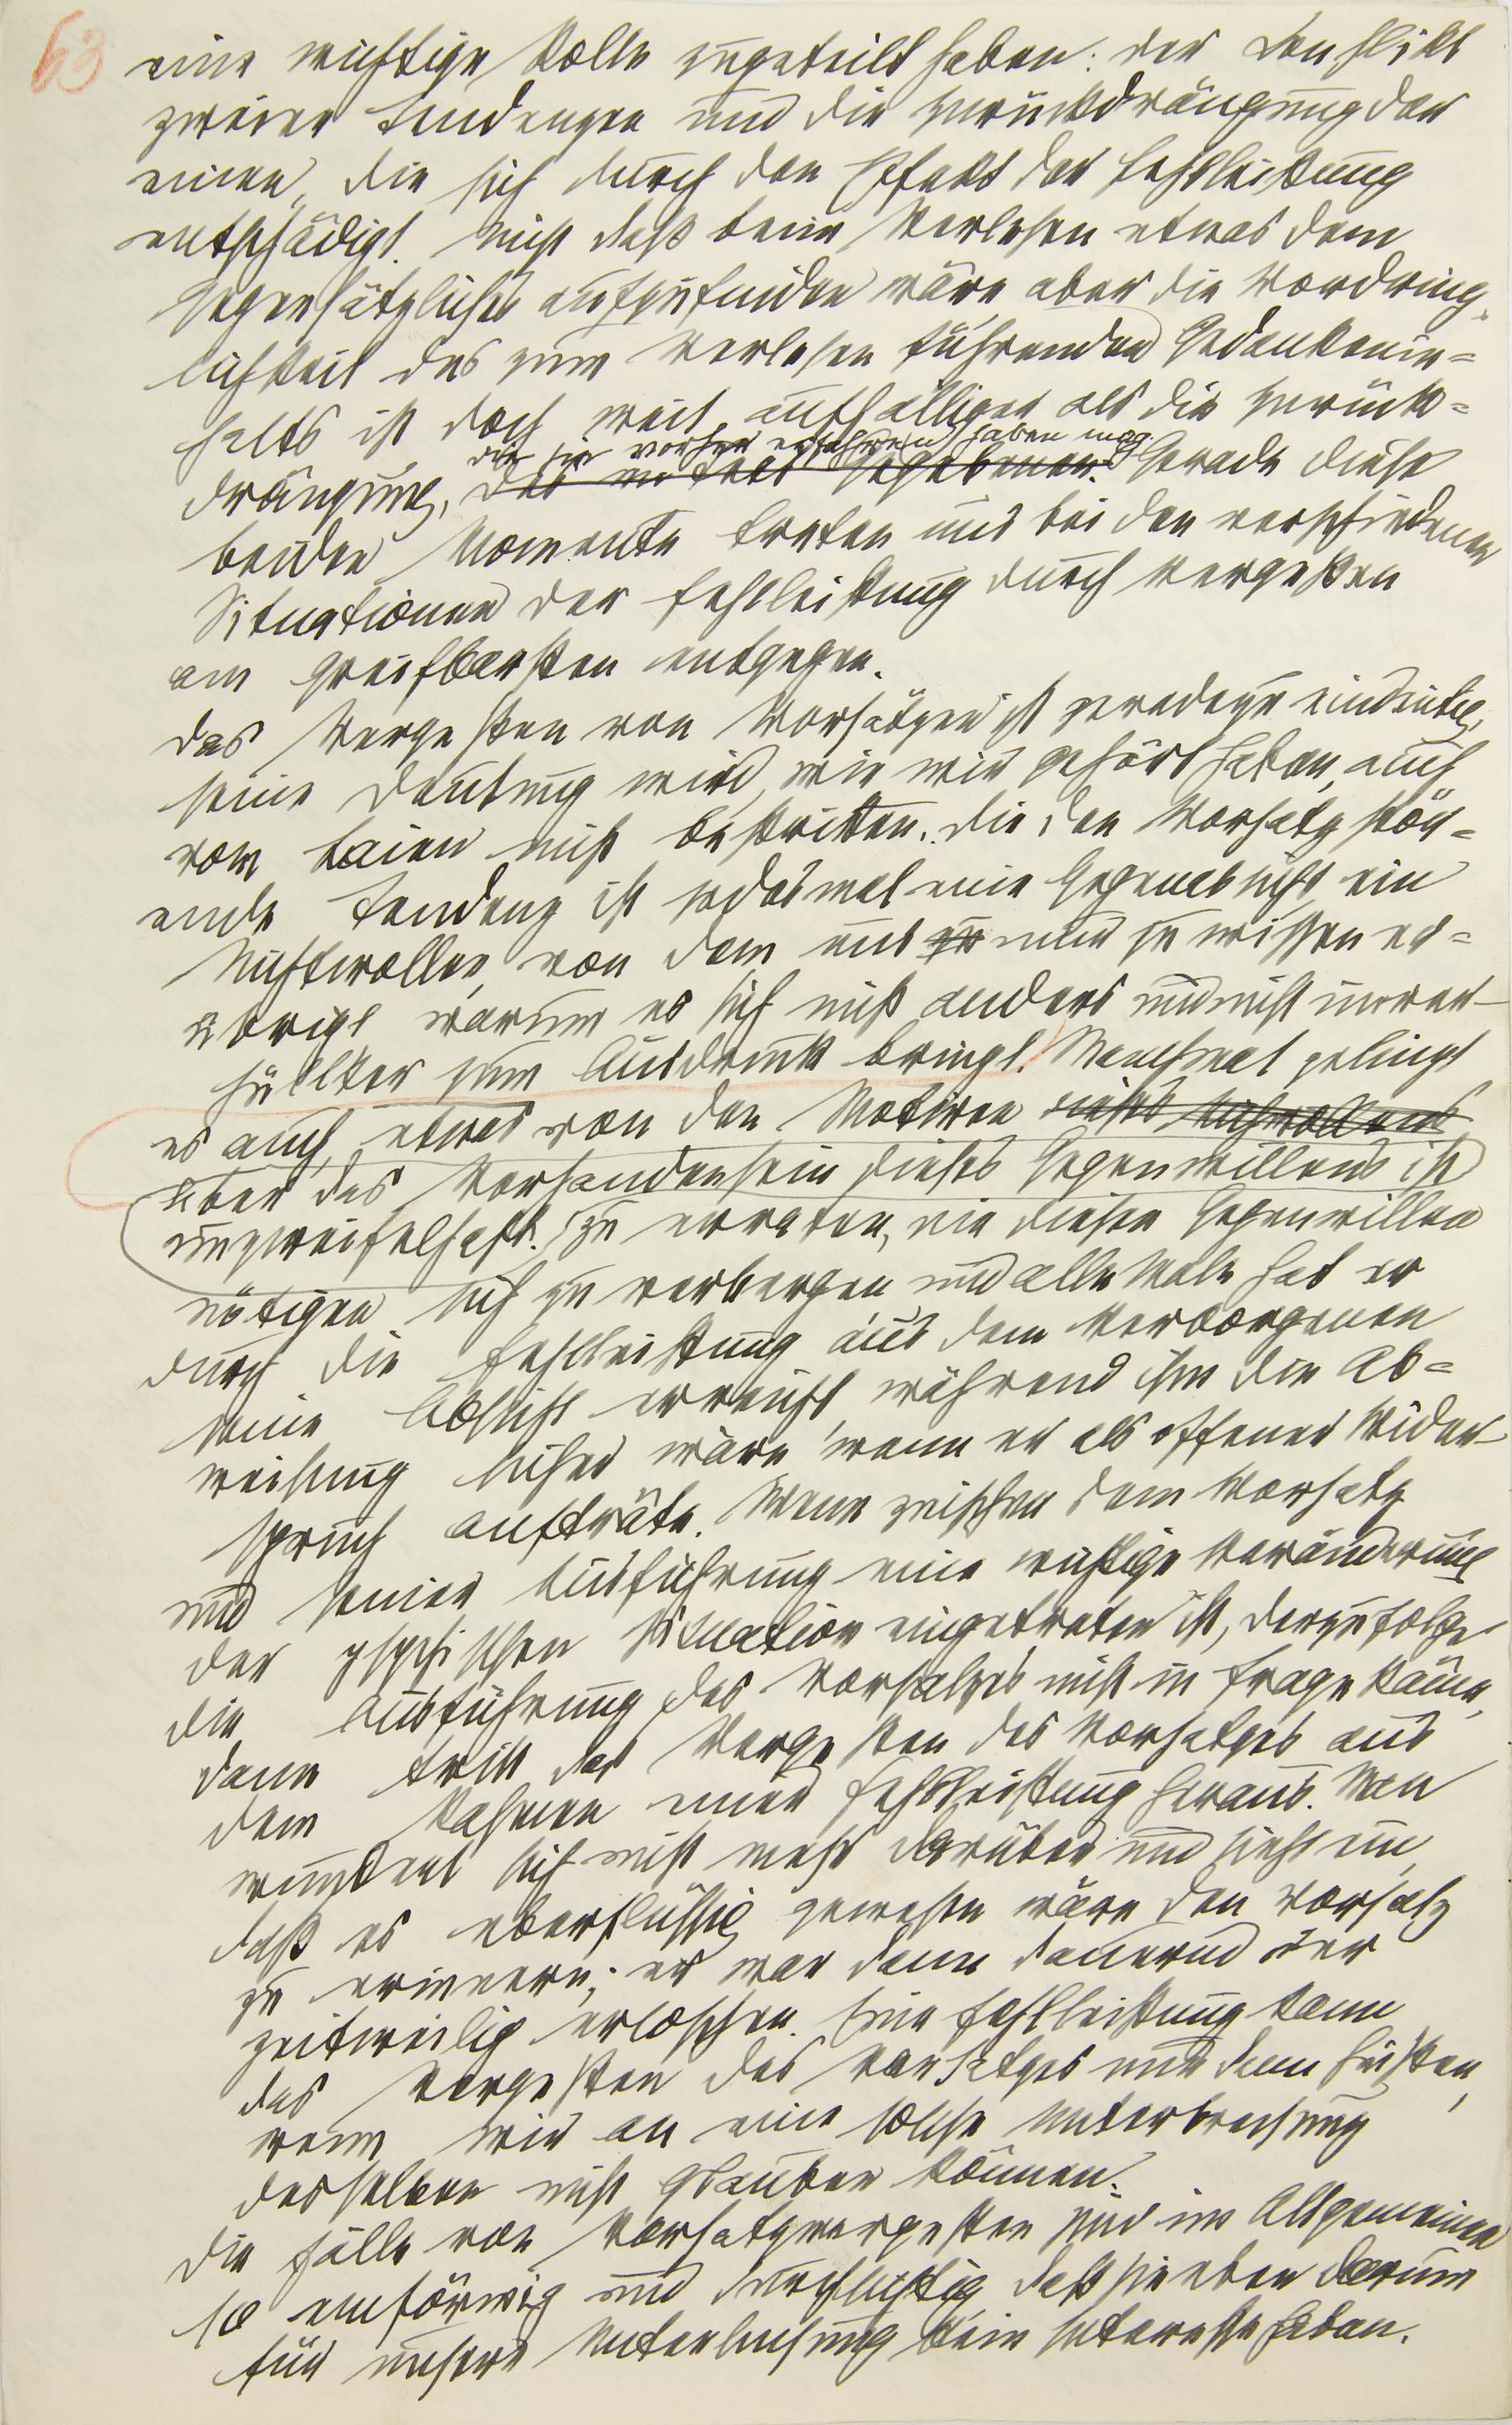 63
eine wichtige Rolle zugeteilt haben: der Konflikt
zweier Tendenzen und die Zurückdrängung der
einen, die sich durch den Effekt der Fehlleistung
entschädigt. Nicht daß beim Verlesen etwas dem
Gegensätzliches aufzufinden wäre, aber die Vordring-
lichkeit des zum Verlesen führenden Gedankenin=
halts ist doch weit auffälliger als die Zurück=
die sie vorher erfahren haben mag.
drängung, Gerade diese
beiden Momente treten uns bei den verschiedenen
Situationen der Fehlleistung durch Vergessen
am greifbarsten entgegen.
Das Vergessen von Vorsätzen ist geradezu eindeutig,
seine Deutung wird, wie wir gehört haben, auch
vom Laien nicht bestritten. Die den Vorsatz stör=
ende Tendenz ist jedesmal eine Gegenabsicht, ein
Nichtwollen, von dem uns nur zu wissen er=
übrigt warum es sich nicht anders und nicht unver-
hüllter zum Ausdruck bringt. Manchmal gelingt
es auch, etwas von den Motiven dieses Nichtwollens
Aber das Vorhandensein dieses Gegenwillens ist
unzweifelhaft. zu erraten, die diesen Gegenwillen
nötigen sich zu verbergen und alle Male hat er
durch die Fehlleistung aus dem Verborgenen
seine Absicht erreicht während ihm die Ab=
weisung sicher wäre, wenn er als offener Wider-
spruch aufträte. Wenn zwischen dem Vorsatz
und seiner Ausführung eine wichtige Veränderung
der psychischen Situation eingetreten ist, derzufolge
die Ausführung des Vorsatzes nicht in Frage käme,
dann tritt das Vergessen des Vorsatzes aus
dem Rahmen einer Fehlleistung heraus. Man
wundert sich nicht mehr darüber und sieht ein,
daß es überflüssig gewesen wäre den Vorsatz
zu erinnern; er war dann dauernd oder
zeitweilig erloschen. Eine Fehlleistung kann
das Vergessen des Vorsatzes nur dann heißen,
wenn wir an eine solche Unterbrechung
desselben nicht glauben können.
Die Fälle von Vorsatzvergessen sind im Allgemeinen
so einförmig und durchsichtig daß sie eben darum
für unsere Untersuchung kein Interesse haben.